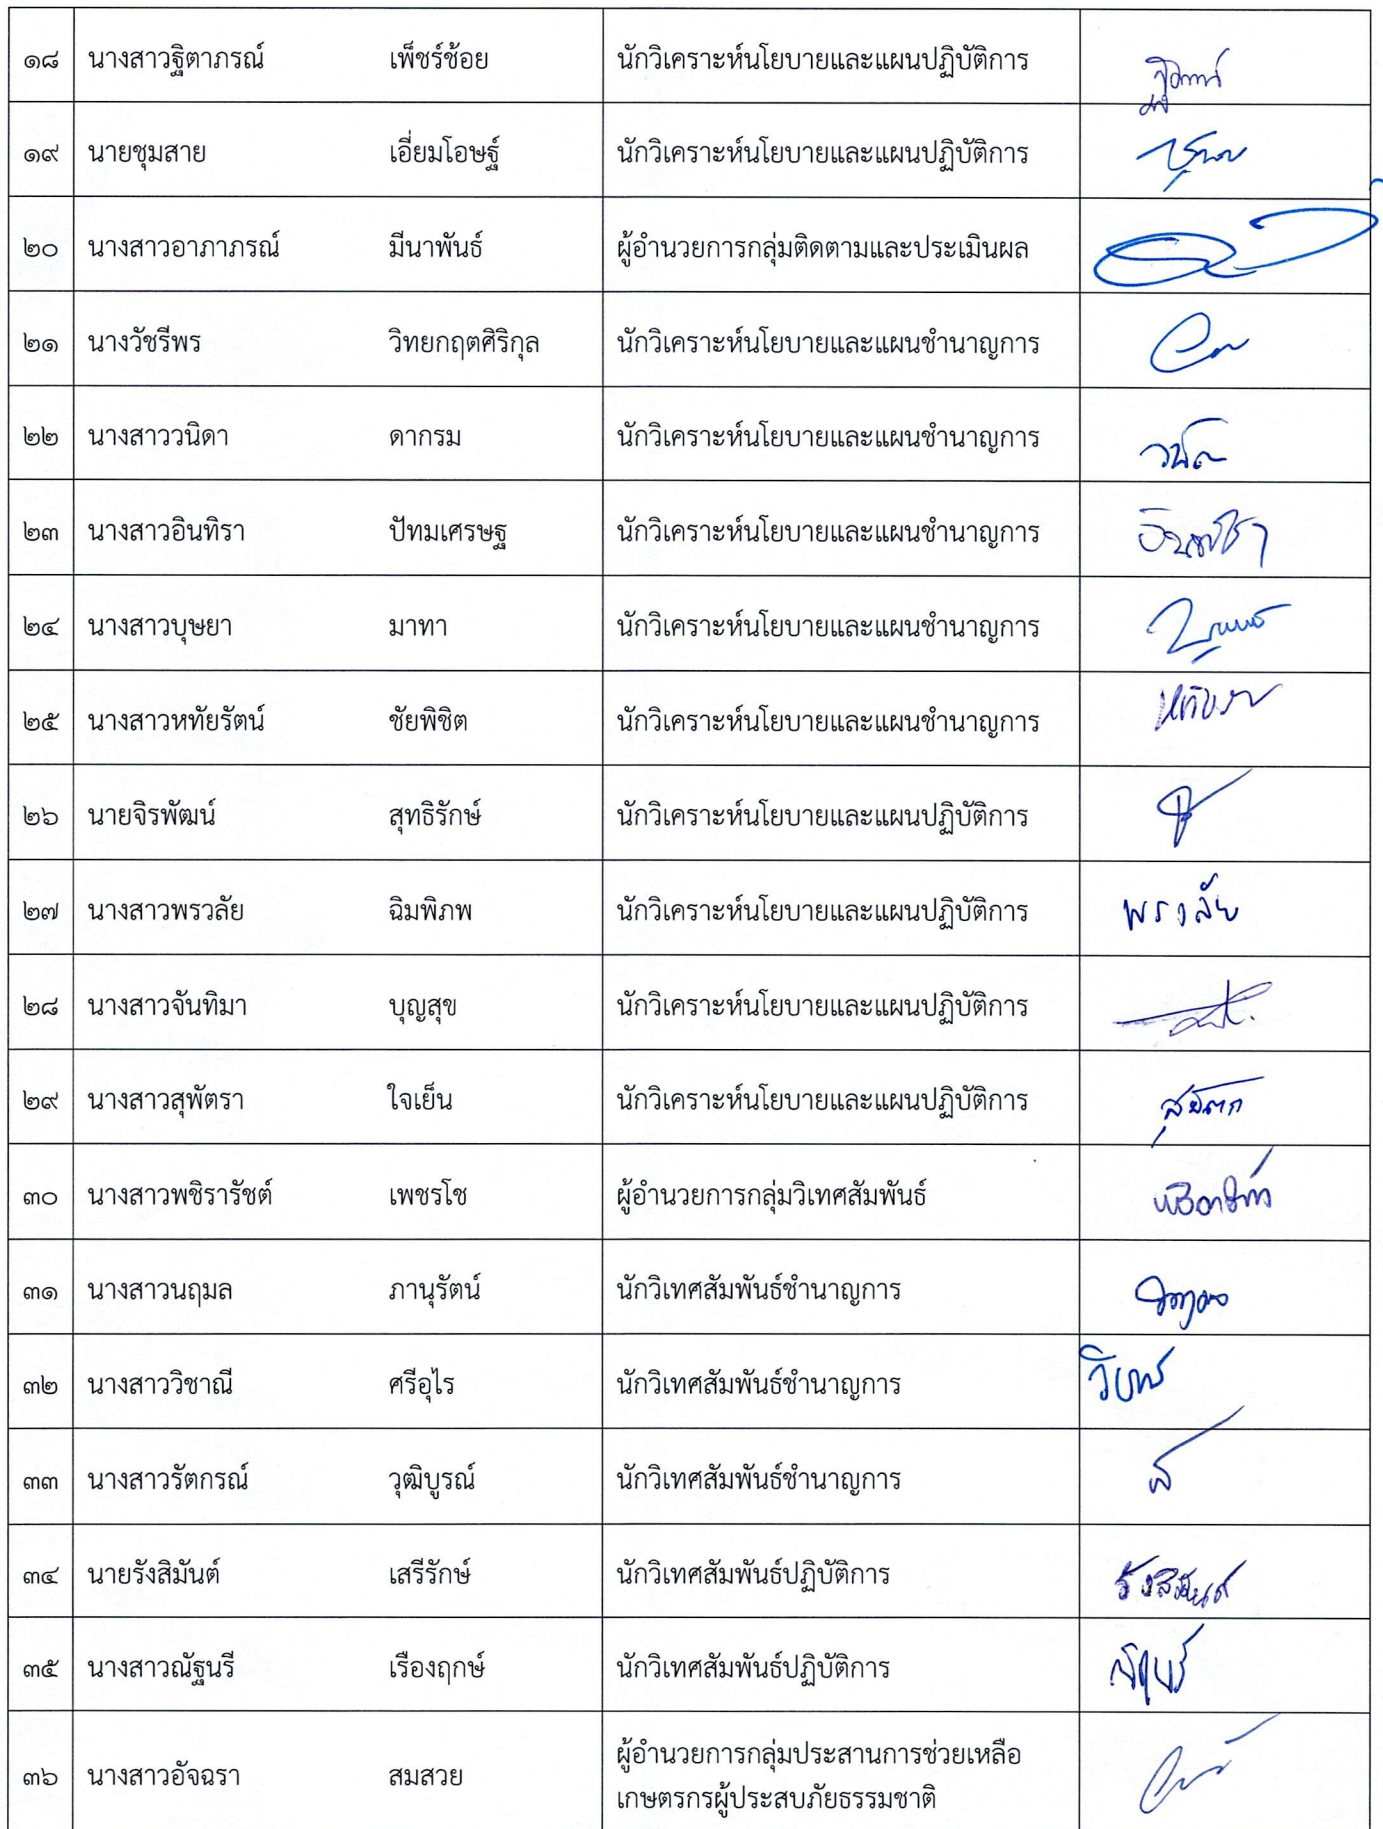 ๑๘ นางสาวฐิตาภรณ์ เพ็ชร์ช้อย นักวิเคราะห์นโยบายและแผนปฏิบัติการ
๑๙ นายชุมสาย เอี่ยมโอษฐ์ นักวิเคราะห์นโยบายและแผนปฏิบัติการ
๒๐ นางสาวอาภาภรณ์ มีนาพันธ์ ผู้อำนวยการกลุ่มติดตามและประเมินผล
๒๑ นางวัชรีพร วิทยกฤตศิริกุล นักวิเคราะห์นโยบายและแผนชำนาญการ
๒๒ นางสาววนิดา ดากรม นักวิเคราะห์นโยบายและแผนชำนาญการ
๒๓ นางสาวอินทิรา ปัทมเศรษฐ นักวิเคราะห์นโยบายและแผนชำนาญการ
๒๔ นางสาวบุษยา มาทา นักวิเคราะห์นโยบายและแผนชำนาญการ
๒๕ นางสาวหทัยรัตน์ ชัยพิชิต นักวิเคราะห์นโยบายและแผนชำนาญการ
๒๖ นายจิรพัฒน์ สุทธิรักษ์ นักวิเคราะห์นโยบายและแผนปฏิบัติการ
๒๗ นางสาวพรวลัย ฉิมพิภพ นักวิเคราะห์นโยบายและแผนปฏิบัติการ พรวลัย
๒๘ นางสาวจันทิมา บุญสุข นักวิเคราะห์นโยบายและแผนปฏิบัติการ
๒๙ นางสาวสุพัตรา ใจเย็น นักวิเคราะห์นโยบายและแผนปฏิบัติการ
๓๐ นางสาวพชิรารัชต์ เพชรโช ผู้อำนวยการกลุ่มวิเทศสัมพันธ์
๓๑ นางสาวนฤมล ภานุรัตน์ นักวิเทศสัมพันธ์ชำนาญการ
๓๒ นางสาววิชาณี ศรีอุไร นักวิเทศสัมพันธ์ชำนาญการ
๓๓ นางสาวรัตกรณ์ วุฒิบูรณ์ นักวิเทศสัมพันธ์ชำนาญการ
๓๔ นายรังสิมันต์ เสรีรักษ์ นักวิเทศสัมพันธ์ปฏิบัติการ รังสิมันต์
๓๕ นางสาวณัฐนรี เรืองฤกษ์ นักวิเทศสัมพันธ์ปฏิบัติการ
๓๖ นางสาวอัจฉรา สมสวย ผู้อำนวยการกลุ่มประสานการช่วยเหลือ
เกษตรกรผู้ประสบภัยธรรมชาติ